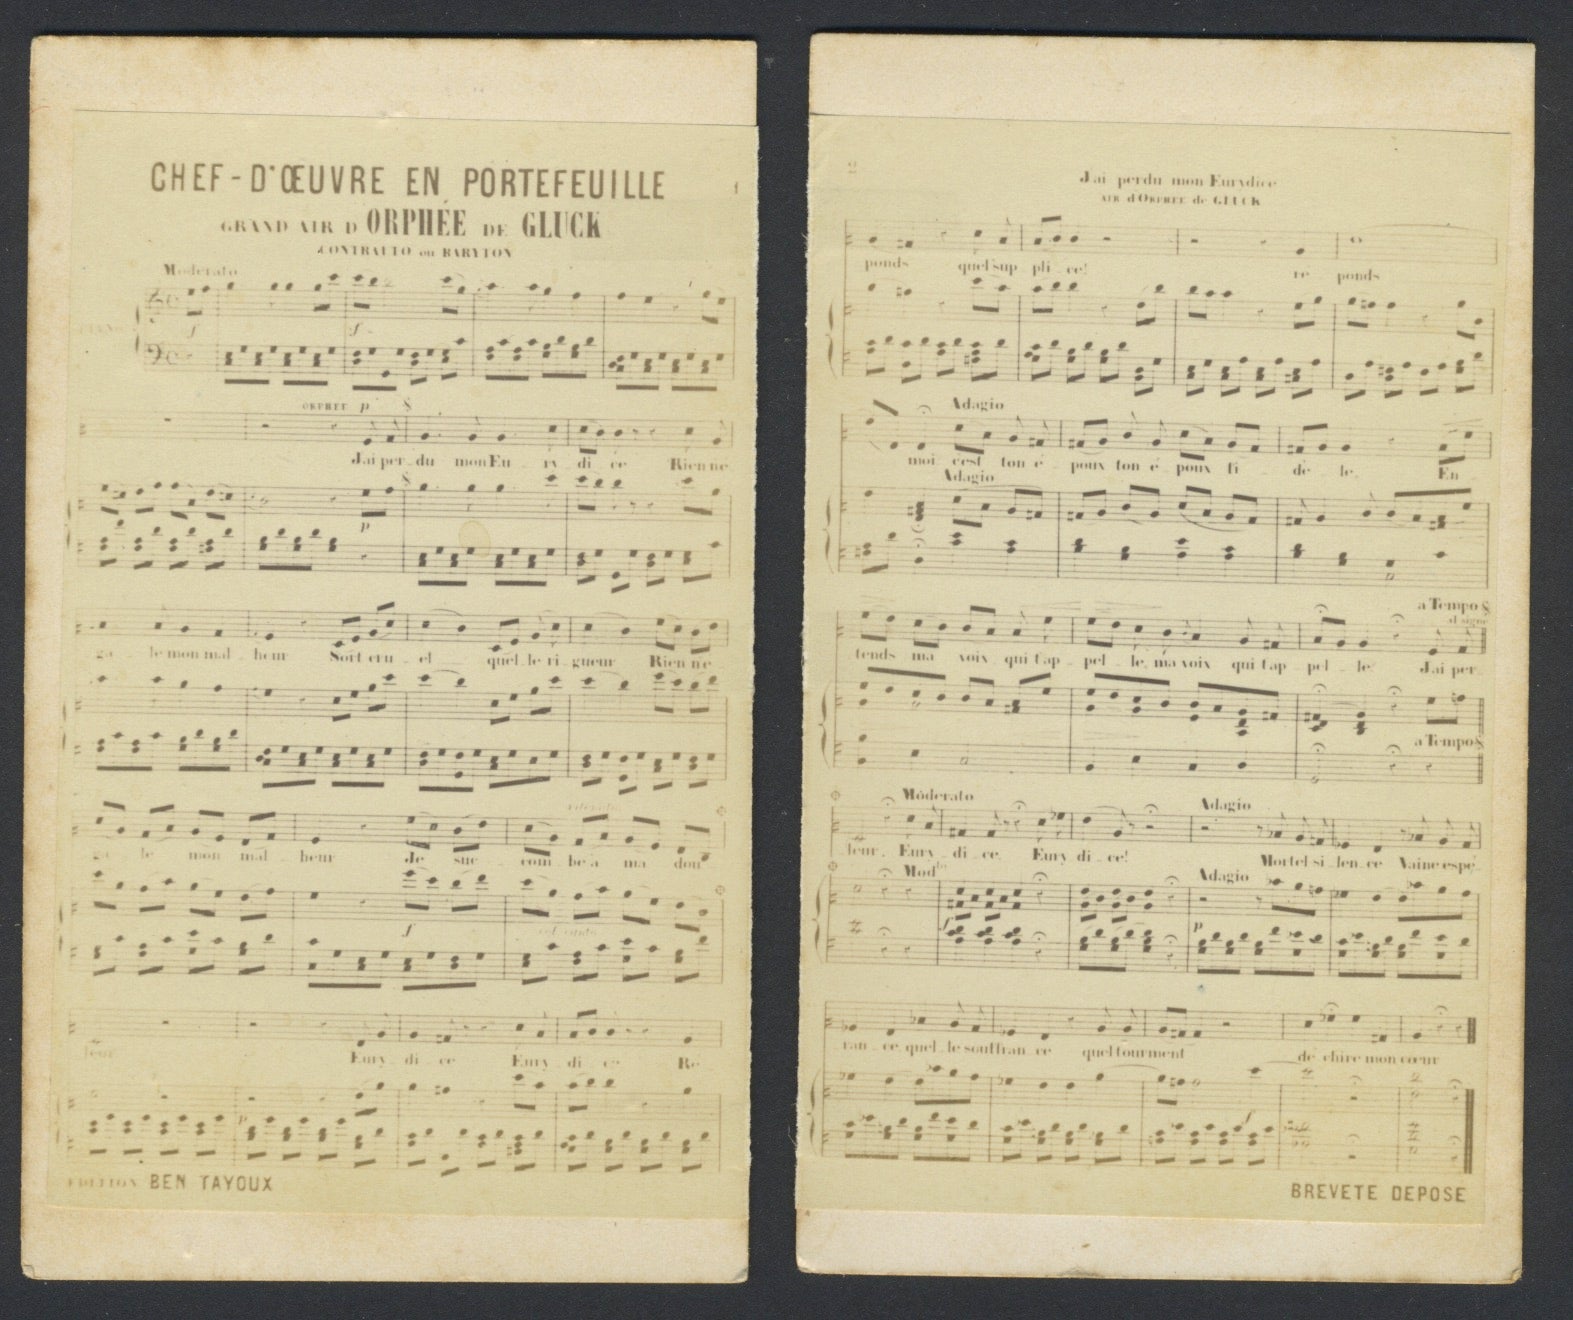 CHEF-D'ŒUVRE EN PORTEFEUILLE
1
GRAND AIR D ORPHÉE DE GLUCK
CONTRALTO ou BARYTON
Moderato
PIANO
f f
ORPHEE p
J'ai per _ du mon Eu _ ry _ di _ ce Rien n'é
p
ga _ le mon mal _ heur Sort cru _ el quel _ le ri _ gueur Rien n'é
ga _ le mon mal _ heur Je suc _ com _ be à ma dou
f
leur Eury _ di _ ce Eury _ di _ ce Ré
p
EDITION BEN TAYOUX
2
J'ai perdu mon Eurydice
AIR d'ORPHEE de GLUCK
ponds quel sup _ pli _ ce! ré _ ponds
Adagio
moi c'est ton é _ poux ton é _ poux fi _ dè _ le. En
Adagio
a Tempo
tends ma voix qui t'ap _ pel _ le, ma voix qui t'ap _ pel _ le J'ai per
a Tempo
Moderato Adagio
leur. Eury _ di _ ce. Eury _ di _ ce! Mortel si _ len _ ce Vaine espé
Modto Adagio
f p
ran _ ce quel _ le souffran _ ce quel tourment dé _ chire mon cœur
f
BREVETE DEPOSE